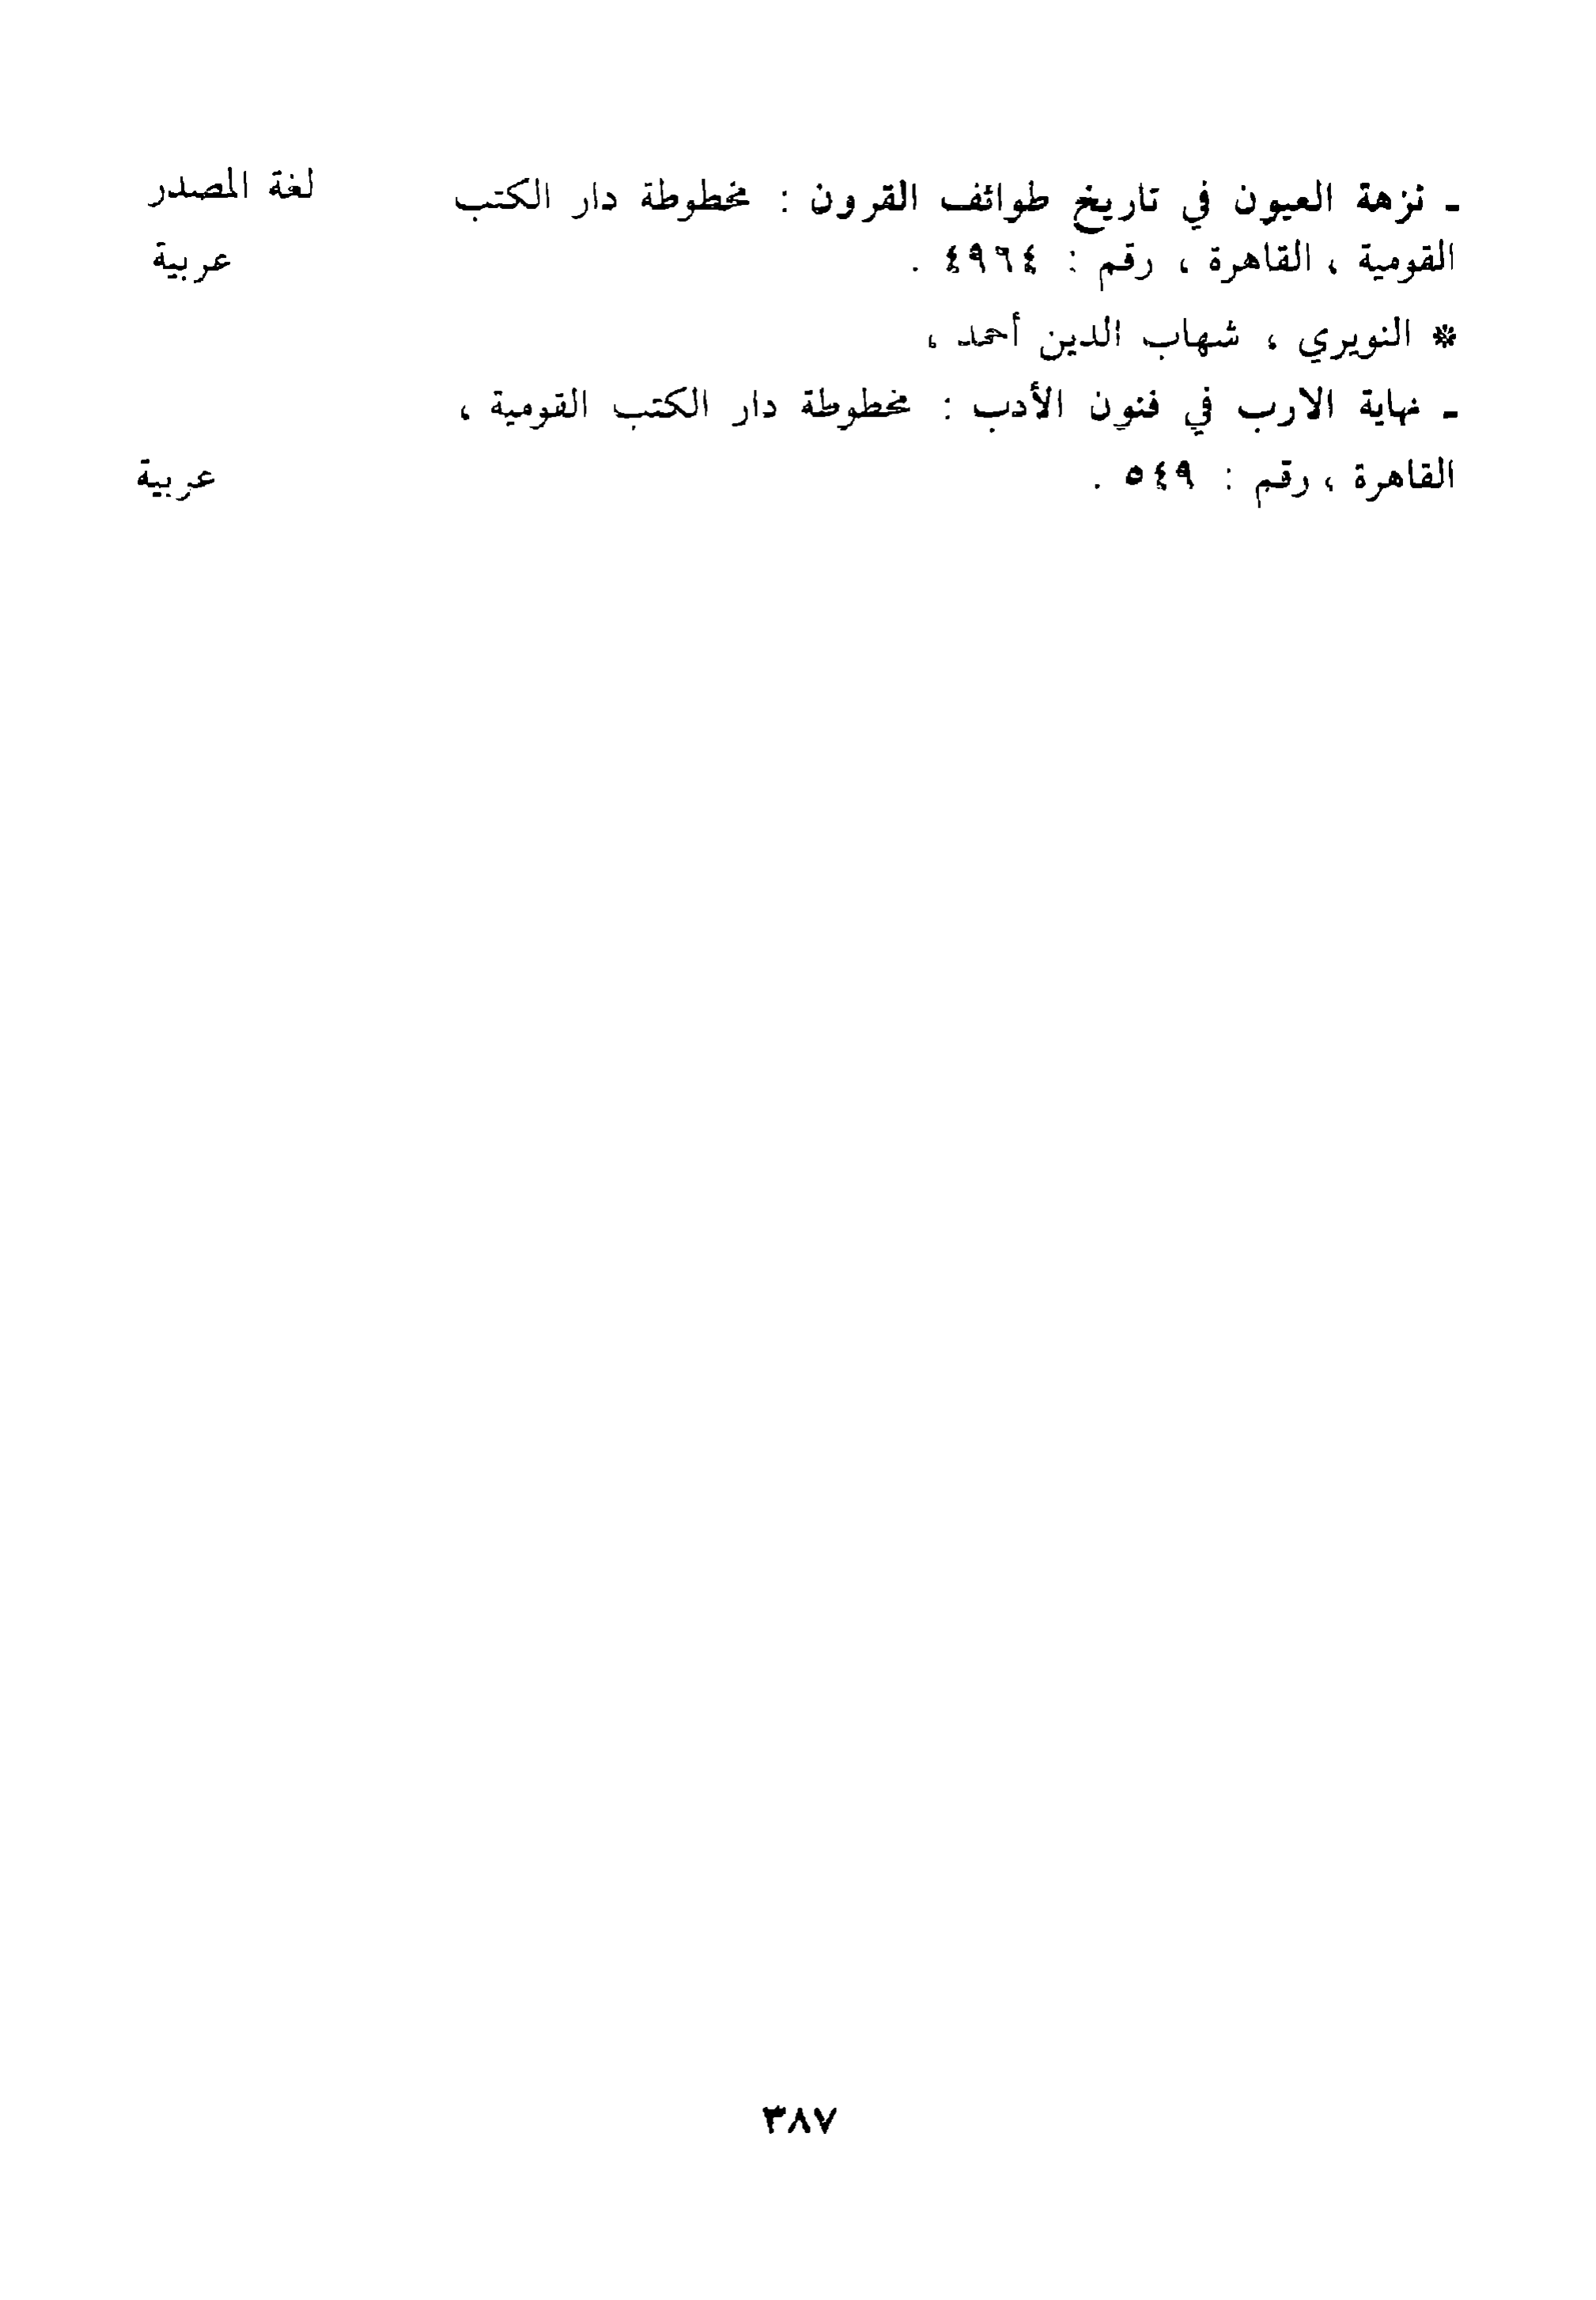 لغة المصدر
ـ نزهة العيون في تاريخ طوائف القرون : مخطوطة دار الكتب
القومية ، القاهرة ، رقم : ٤٩٦٤ .
عربية
* النويري ، شهاب الدين أحمد ،
ـ نهاية الارب في فنون الأدب : مخطوطة دار الكتب القومية ،
القاهرة ، رقم : ٥٤٩ .
عربية
٣٨٧